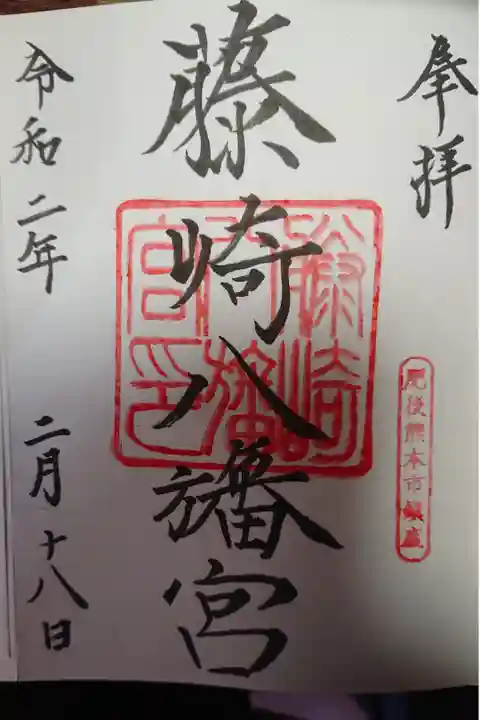 奉拝
肥後熊本市鎮座
藤崎八旛宮
藤崎八旛宮印
令和二年 二月十八日